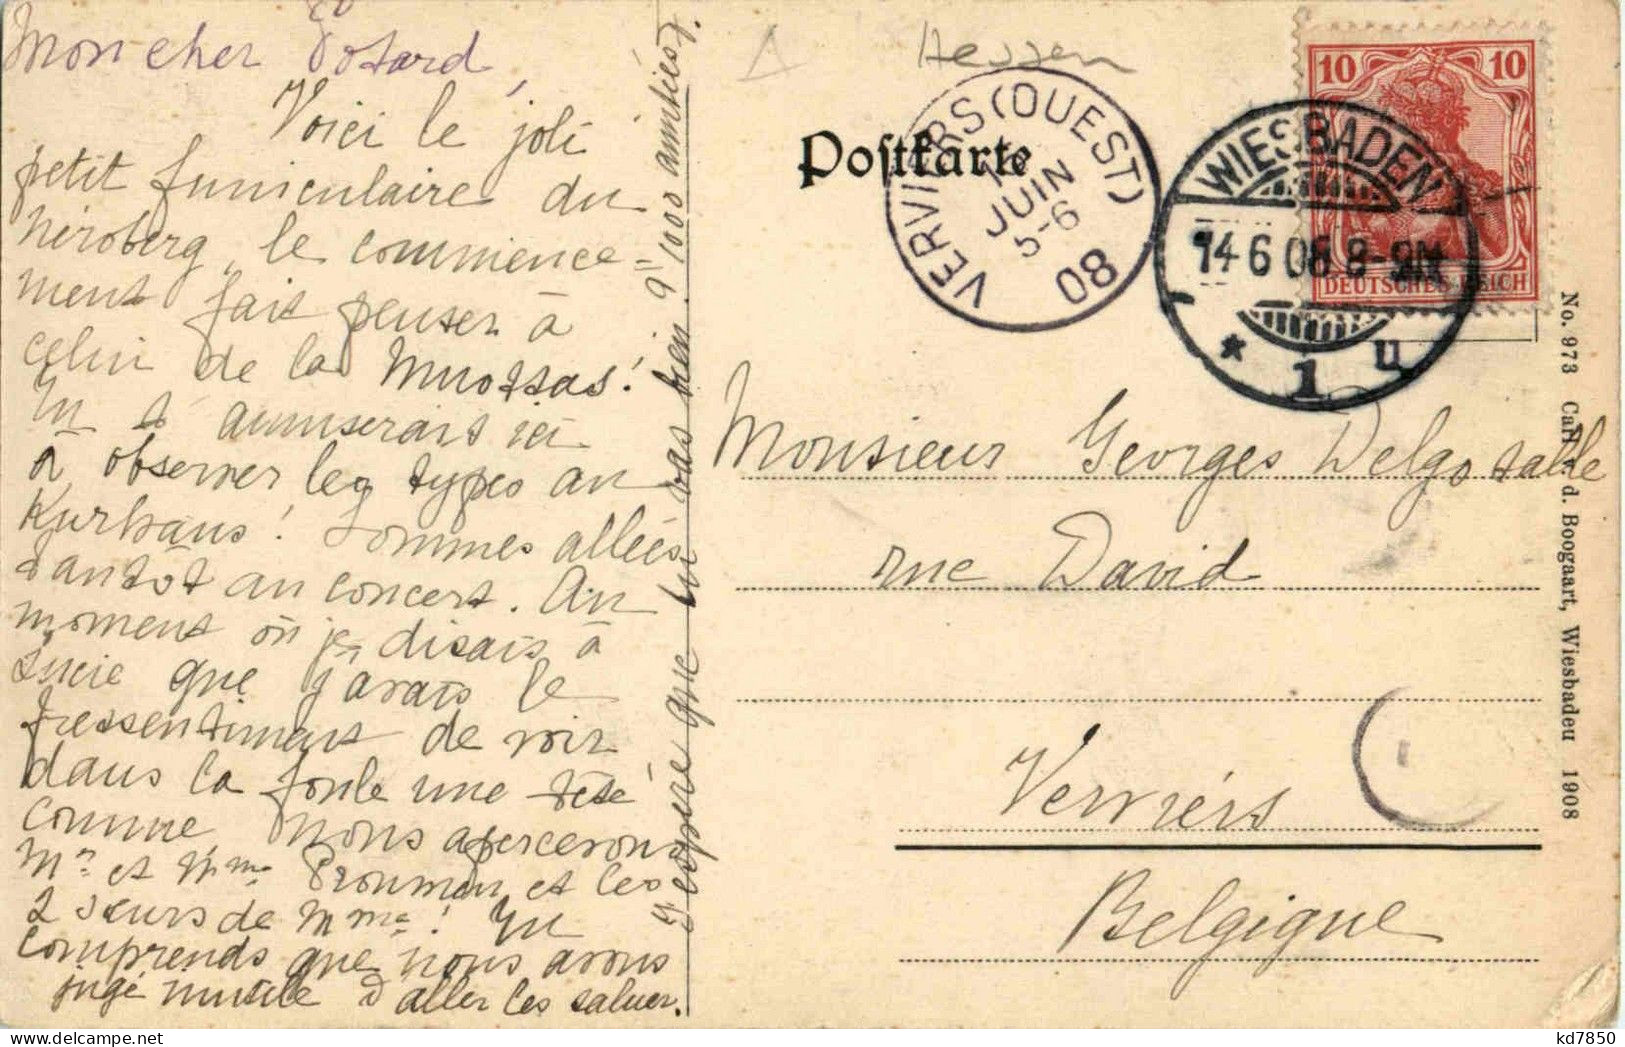 Mon cher
Voici le joli
petit funiculaire du
Néroberg, le commence=
ment fait penser à
celui de la
Tu t'amuserais ici
à observer les types au
Kurhaus! Sommes allées
tantôt au concert. Au
moment où je disais à
Lucie que j'avais le
pressentiment de voir
dans la foule une tête
connue, nous apercevons
Mr et Mme et les
2 sœurs de Mme! Tu
comprends que nous avons
jugé inutile d'aller les saluer.
J'espère que tu vas bien. 1000 amitiés
Hessen
Postkarte
VERVIERS (OUEST)
JUIN
5-6
08
WIESBADEN
14 6 08 8-9N
* 1 u
10 10
DEUTSCHES REICH
Monsieur Georges Delgotalle
rue David
Verviers
Belgique
No. 973 Carl v. d. Boogaart, Wiesbaden 1908
kd7850